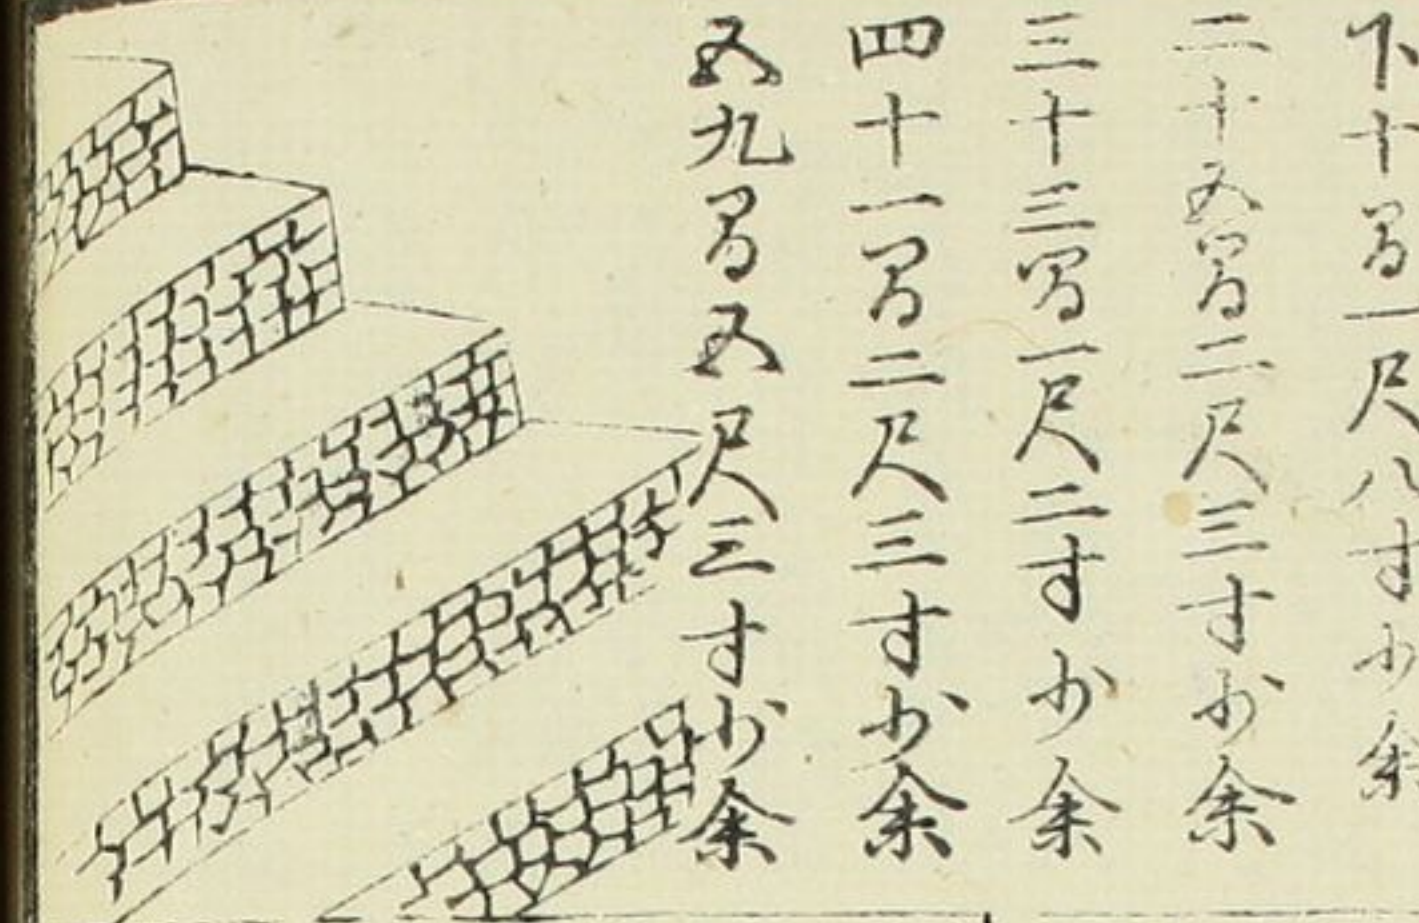 下十間一尺八寸少余
二十五間二尺三寸少余
三十三間一尺二寸少余
四十一間二尺三寸少余
五九間五尺三寸少余